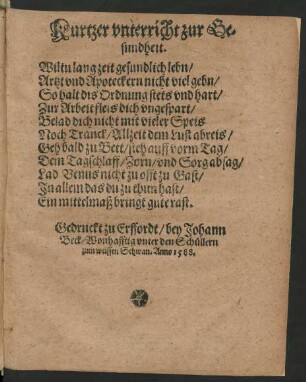 Kurtzer vnterricht zur Ge-
sundheit.
Wiltu lang zeit gesundlich lebn/
Artzt vnd Apoteckern nicht viel gebn/
So halt dis Ordnung stets vnd hart/
Zur Arbeit fleis dich vngespart/
Belad dich nicht mit vieler Speis
Noch Tranck/ Allzeit dem Lust abreis/
Geh bald zu Bett/ steh auff vorm Tag/
Dem Tagschlaff/ Zorn/ vnd Sorg absag/
Lad Venus nicht zu offt zu Gast/
In allem das du zu thun hast/
Ein mittelmaß bringt gute rast.
Gedruckt zu Erffordt/ bey Johann
Beck/ Wonhafftig vnter den Schüllern
zum weissen Schwan. Anno 1588.